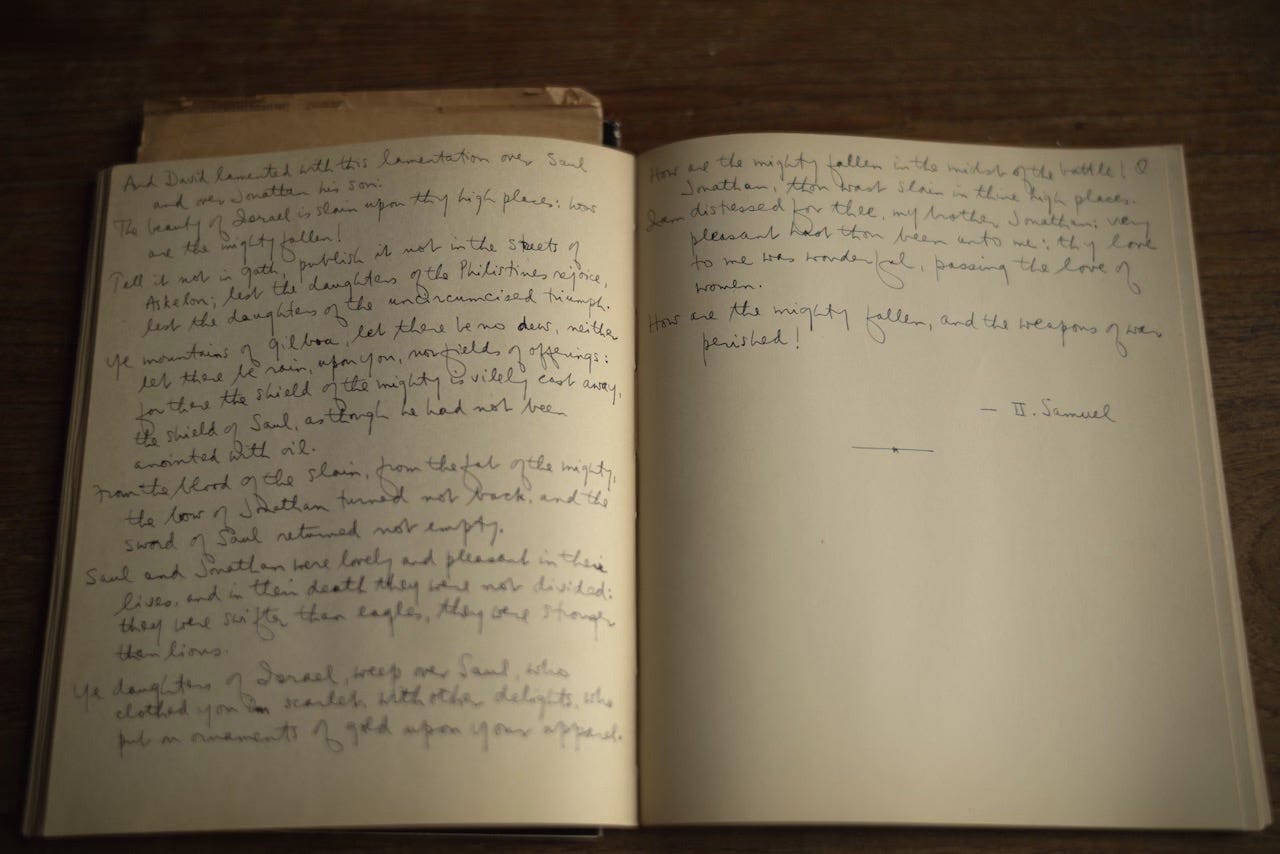 And David lamented with this lamentation over Saul
and over Jonathan his son:
The beauty of Israel is slain upon thy high places: how
are the mighty fallen!
Tell it not in Gath, publish it not in the streets of
Askelon; lest the daughters of the Philistines rejoice,
lest the daughters of the uncircumcised triumph.
Ye mountains of Gilboa, let there be no dew, neither
let there be rain, upon you, nor fields of offerings:
for there the shield of the mighty is vilely cast away,
the shield of Saul, as though he had not been
anointed with oil.
From the blood of the slain, from the fat of the mighty,
the bow of Jonathan turned not back, and the
sword of Saul returned not empty.
Saul and Jonathan were lovely and pleasant in their
lives, and in their death they were not divided:
they were swifter than eagles, they were stronger
than lions.
Ye daughters of Israel, weep over Saul, who
clothed you in scarlet, with other delights, who
put on ornaments of gold upon your apparel.
How are the mighty fallen in the midst of the battle! O
Jonathan, thou wast slain in thine high places.
I am distressed for thee, my brother Jonathan: very
pleasant hast thou been unto me: thy love
to me was wonderful, passing the love of
women.
How are the mighty fallen, and the weapons of war
perished!
— II. Samuel